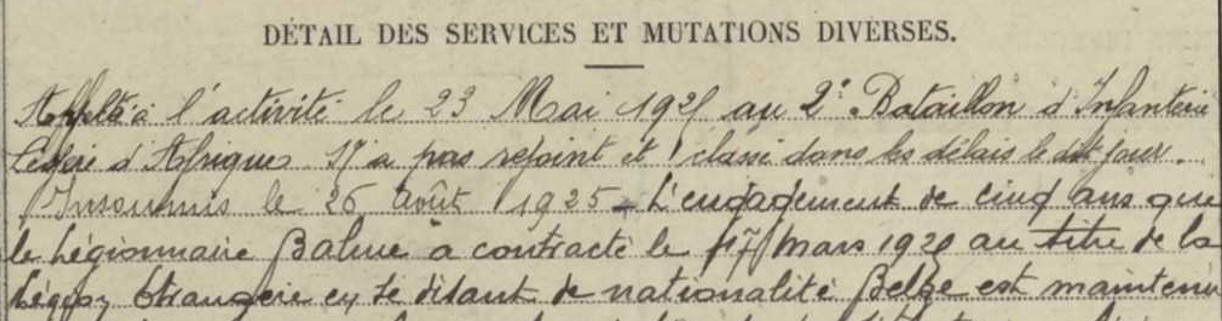 DÉTAIL DES SERVICES ET MUTATIONS DIVERSES.
Appelé à l'activité le 23 Mai 1925 au 2e Bataillon d'Infanterie
Légère d'Afrique. N'a pas rejoint et classé dans les délais le dit jour.
Insoumis le 26 Août 1925 - L'engagement de cinq ans que
le Légionnaire Balme a contracté le 17 mars 1929 au titre de la
Légion Etrangère en se disant de nationalité Belge est maintenu